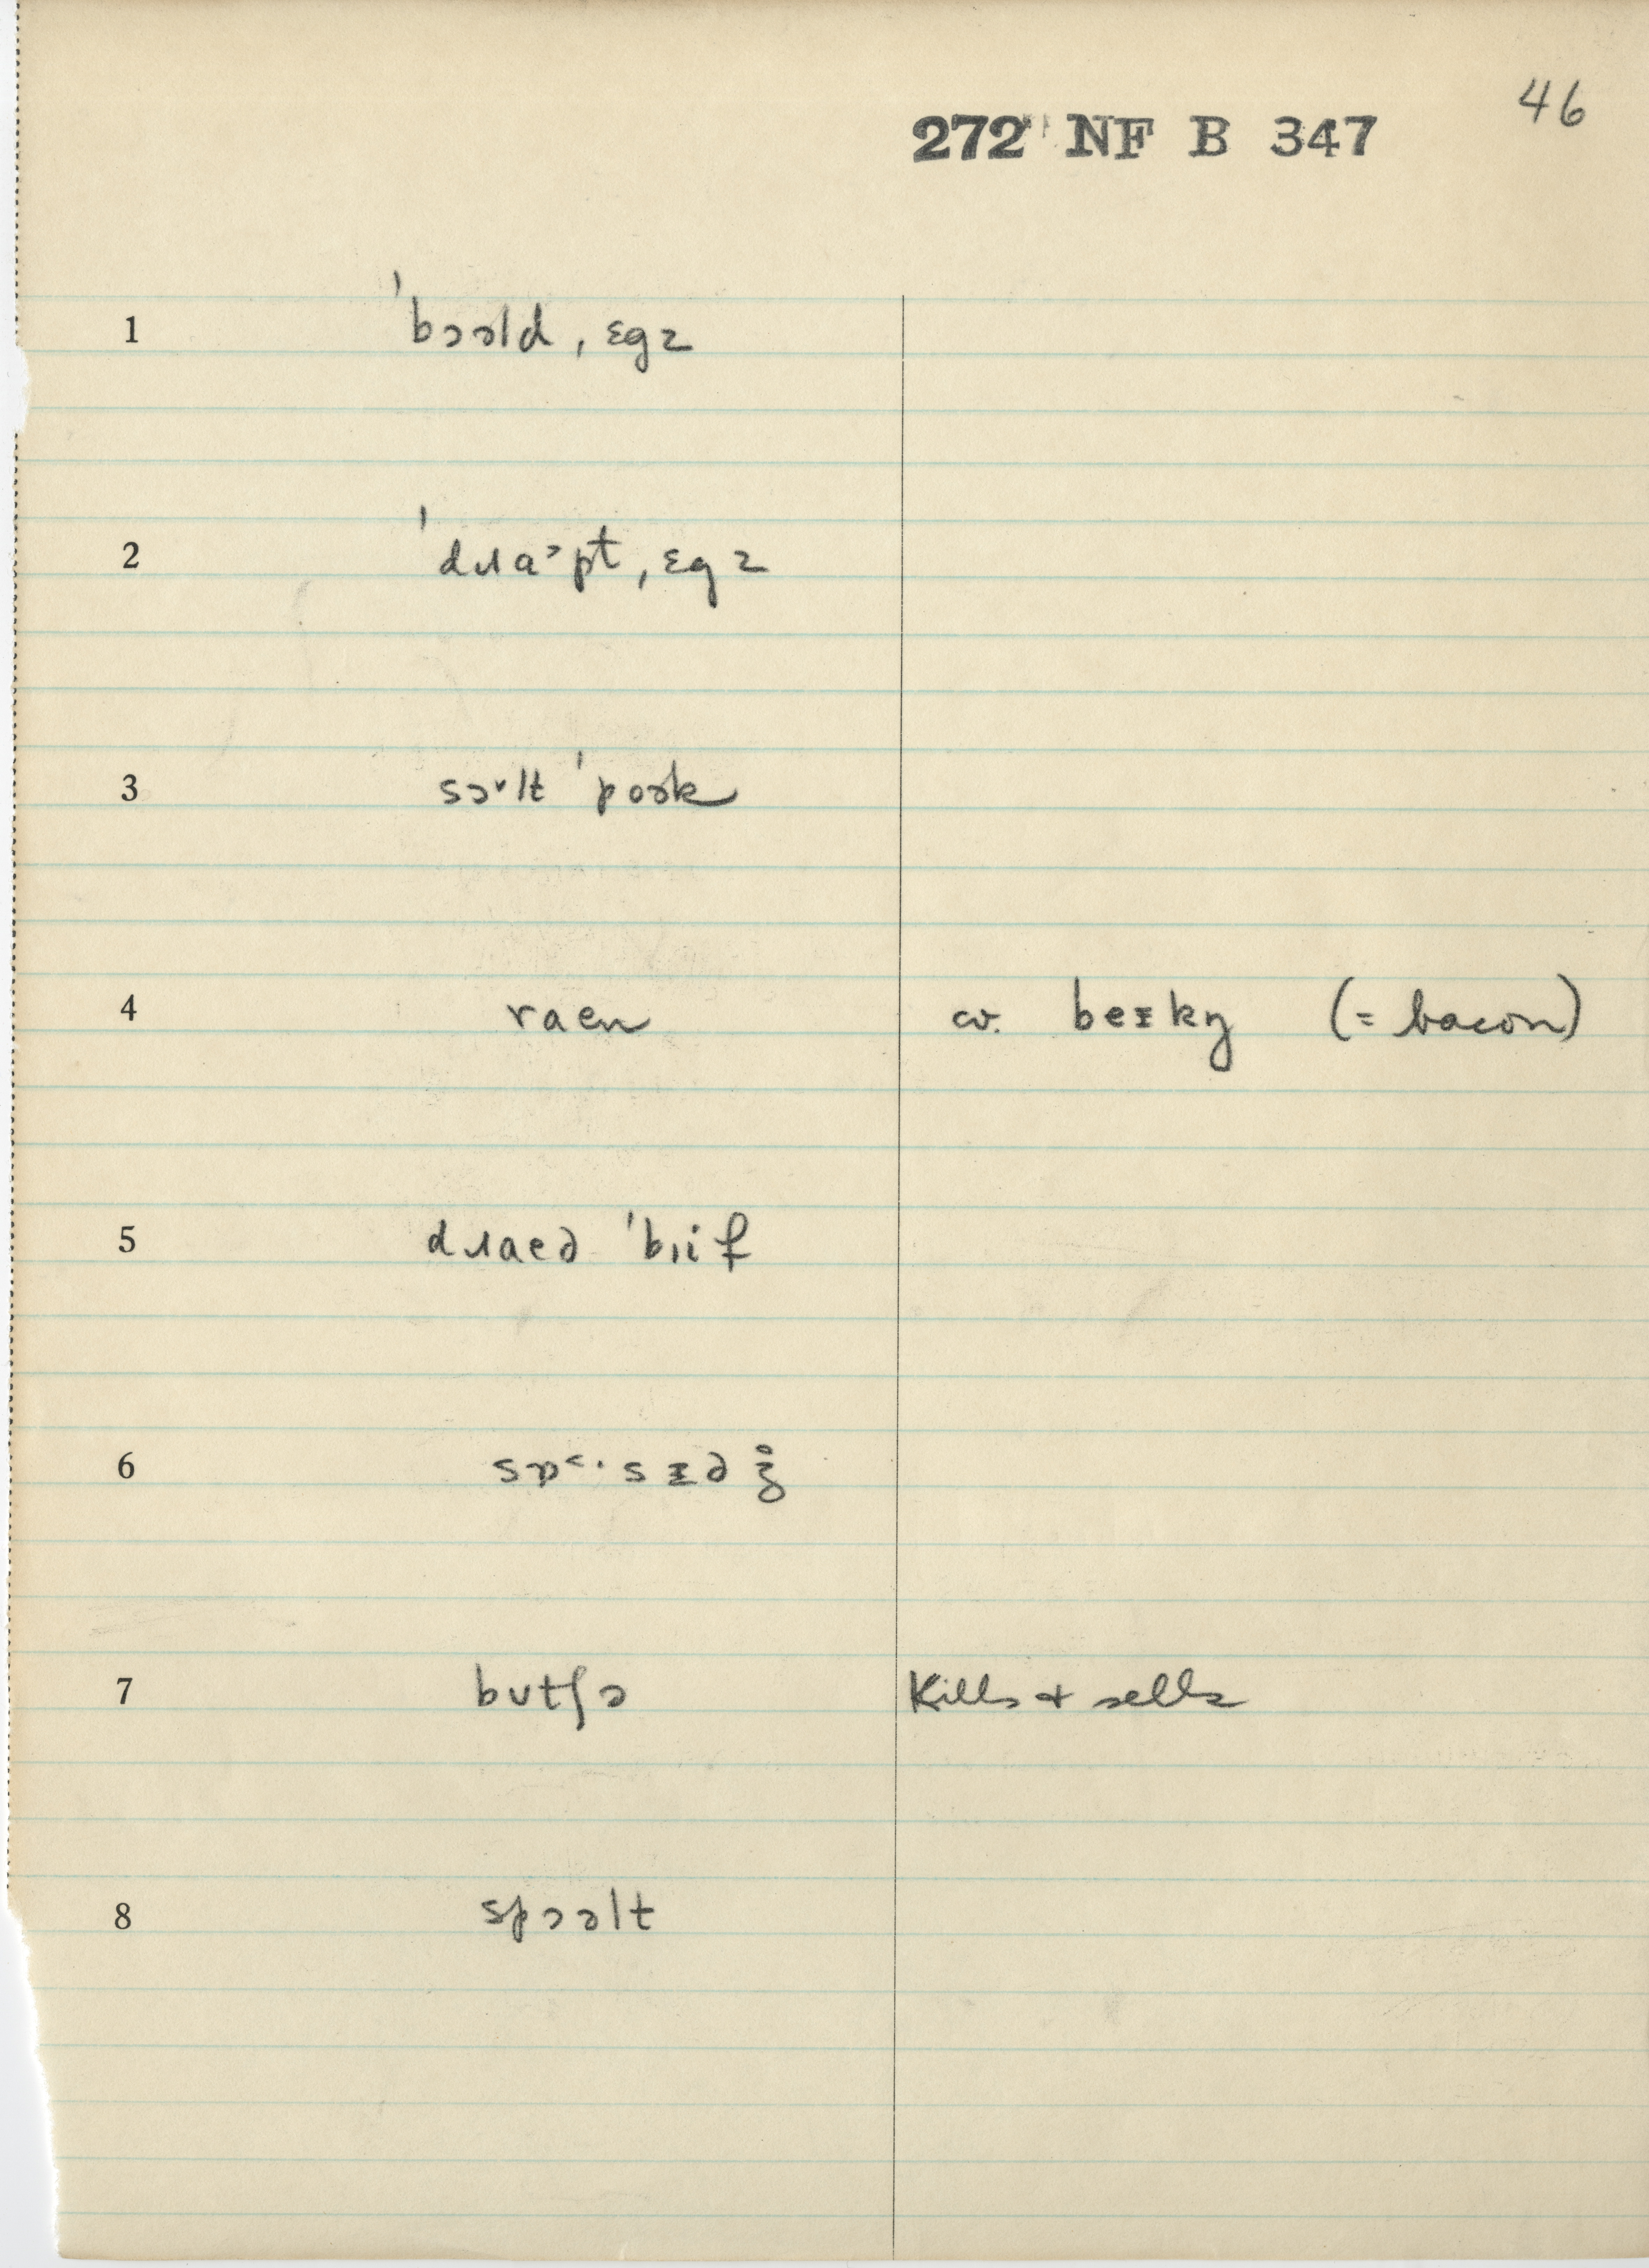 46
272 NF B 347
1 ˈbɔəld, ɛgz
2 ˈdɹɑᵊpt, ɛgz
3 sɔᵛlt ˈpoək
4 raen cv. beɪkŋ (= bacon)
5 dɹaeə ˈbɪif
6 sɒ˂·sɪəʒ̊
7 bʌtʃə Kills & sells
8 spɔəlt